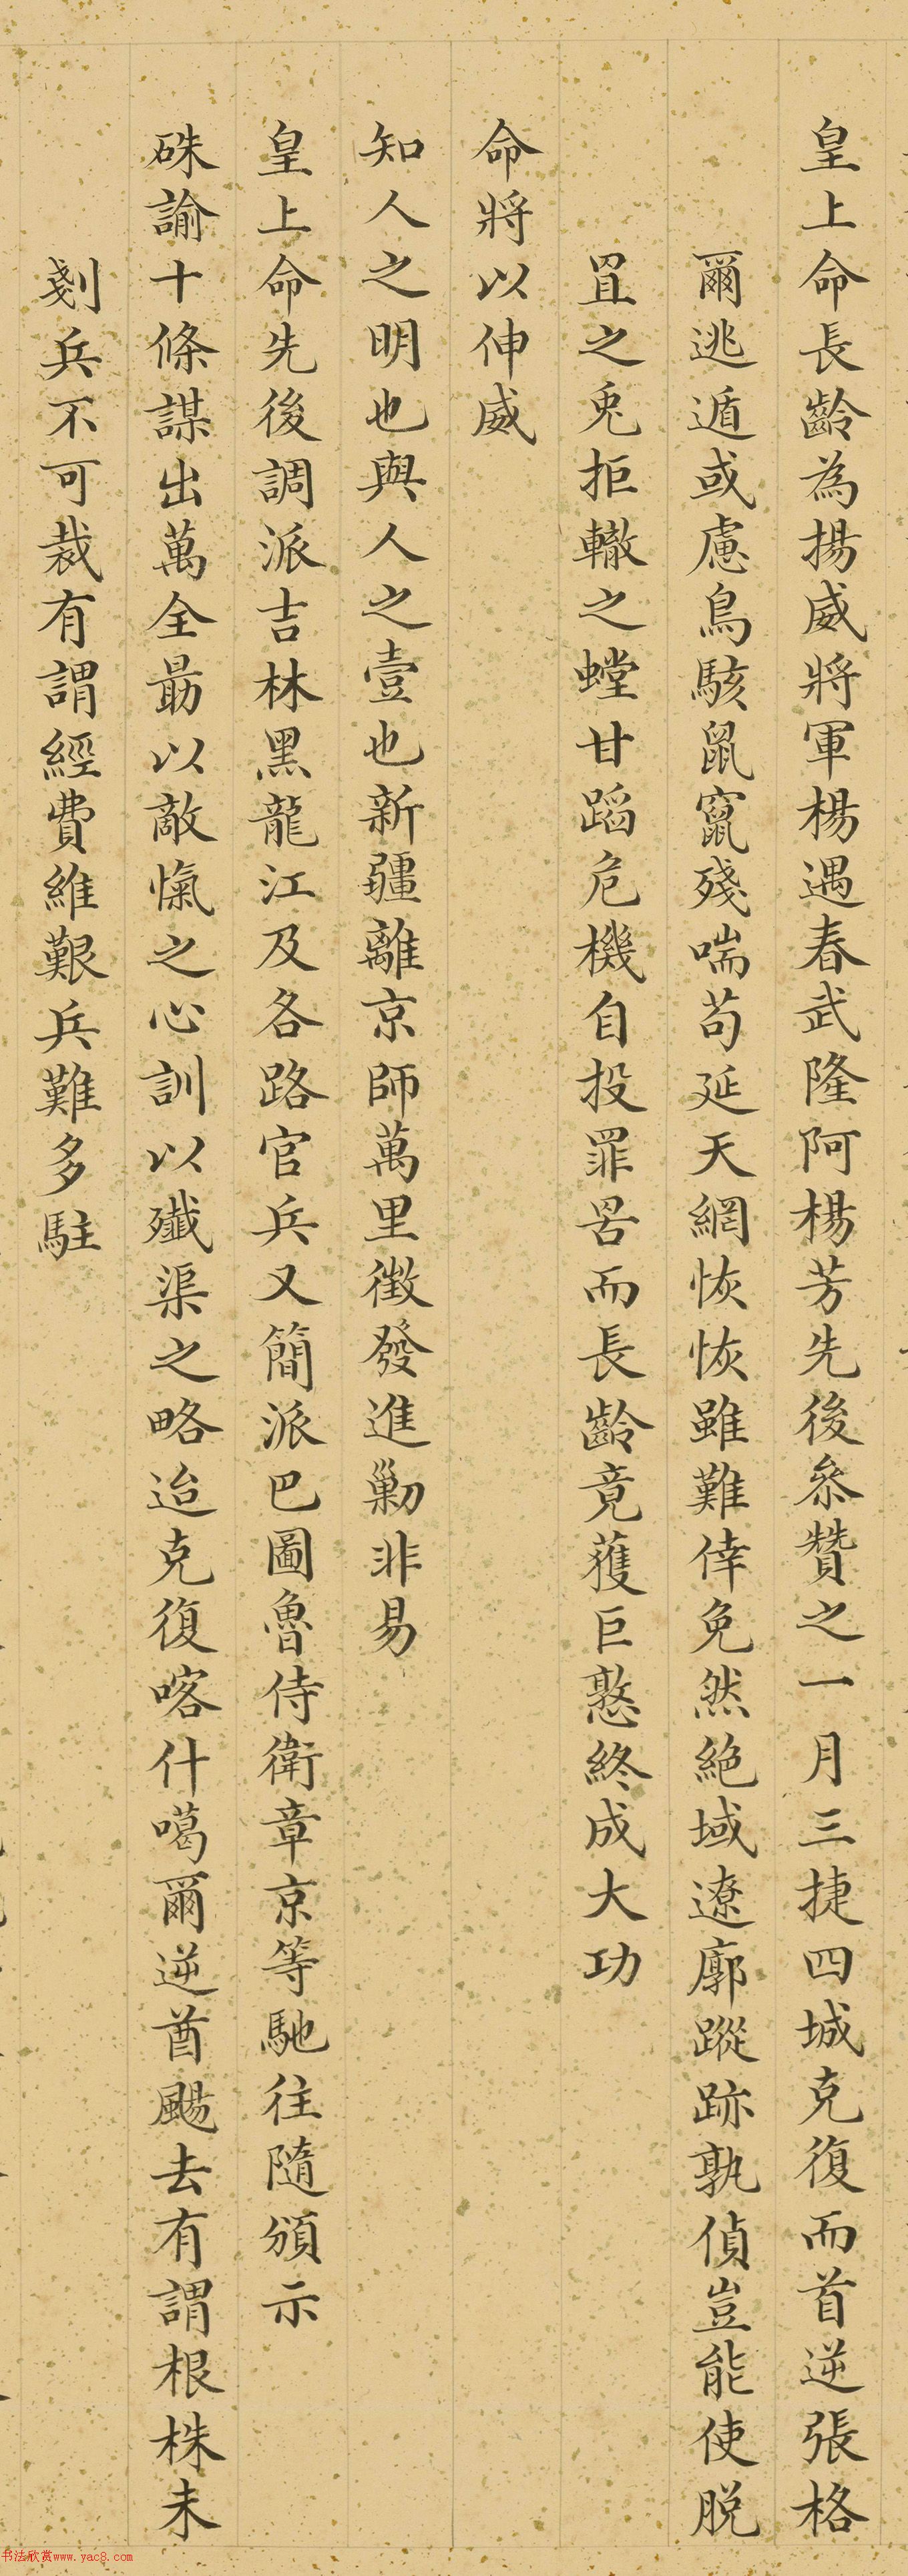 皇上命長齡為揚威將軍楊遇春武隆阿楊芳先後叅贊之一月三捷四城克復而首逆張格
爾逃遁或慮鳥駭鼠竄殘喘苟延天網恢恢雖難倖免然絕域遼廓蹤跡孰偵豈能使脫
罝之兎拒轍之螳甘蹈危機自投罪罟而長齡竟獲巨憝終成大功
命將以伸威
知人之明也與人之壹也新疆離京師萬里徴發進勦非易
皇上命先後調派吉林黑龍江及各路官兵又簡派巴圖魯侍衛章京等馳往隨頒示
硃諭十條謀出萬全勗以敵愾之心訓以殲渠之略迨克復喀什噶爾逆酋颺去有謂根株未
剗兵不可裁有謂經費維艱兵難多駐
书法欣赏www.yac8.com